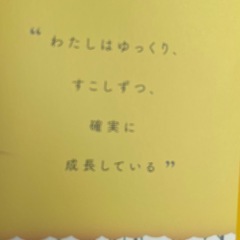 “わたしはゆっくり、
すこしずつ、
確実に
成長している”